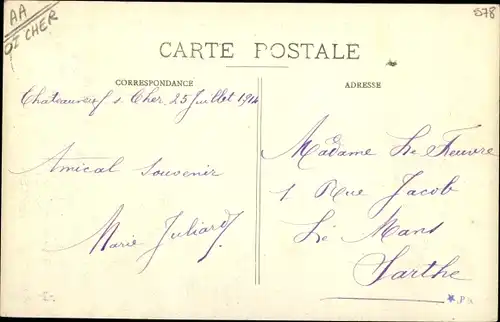 AA
OZ CHER
578
CARTE POSTALE
CORRESPONDANCE
ADRESSE
Chateauneuf s Cher 25 Juillet 1914
Amical Souvenir
Marie Juliard
Madame Le Feuvre
1 Rue Jacob
Le Mans
Sarthe